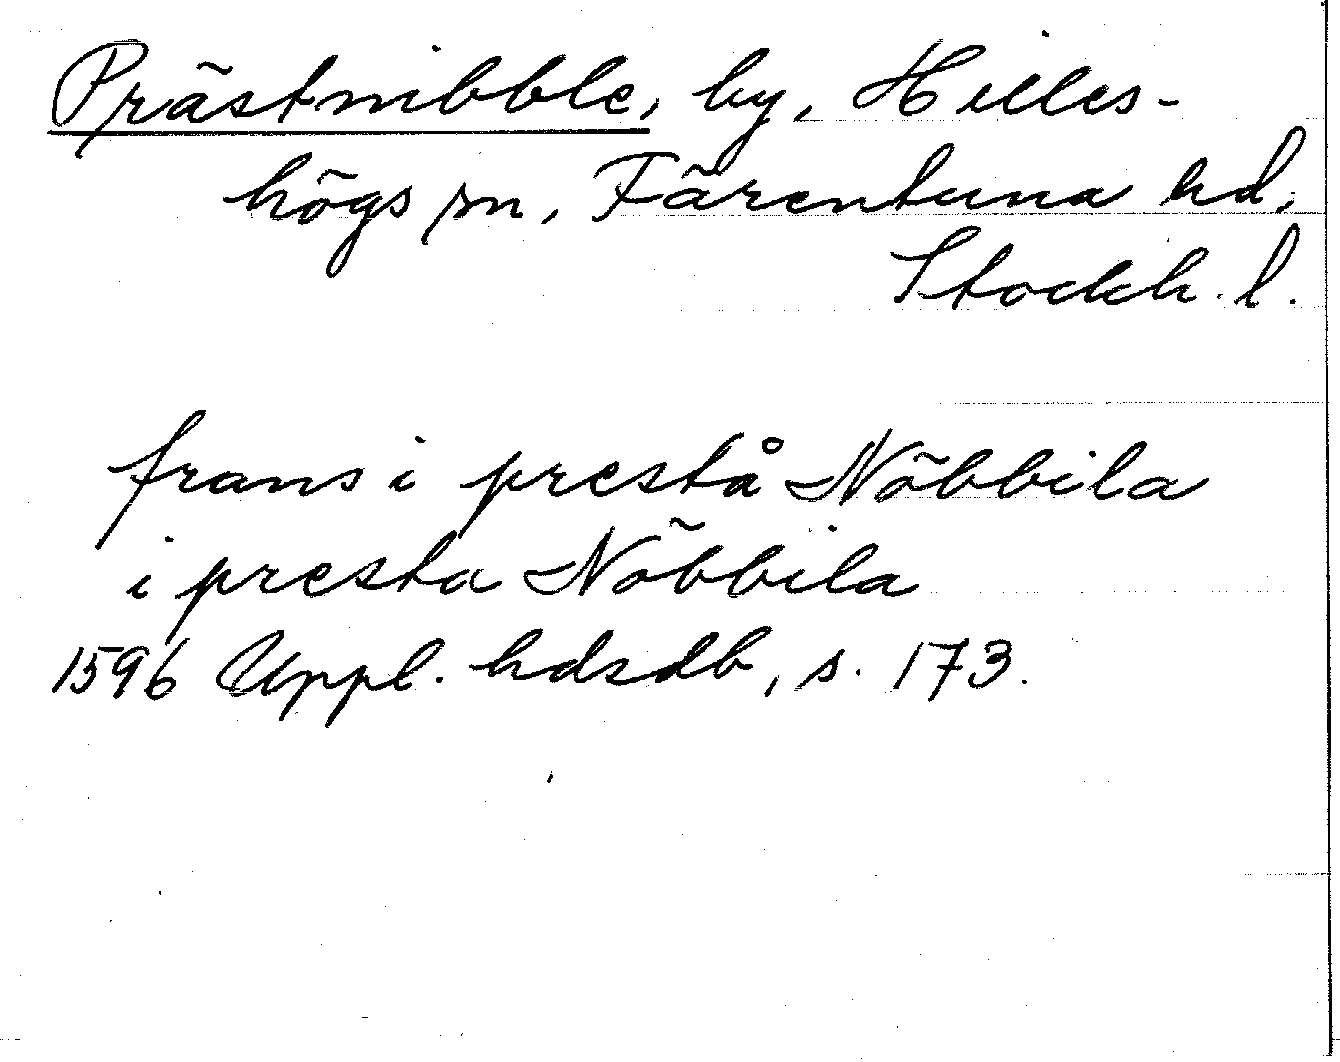 Prästnibble, by, Hilles-
högs sn, Färentuna hd,
Stockh. l.
frans i prestå Nöbbila
i presta Nöbbila
1596 Uppl. hdsdb, s. 173.